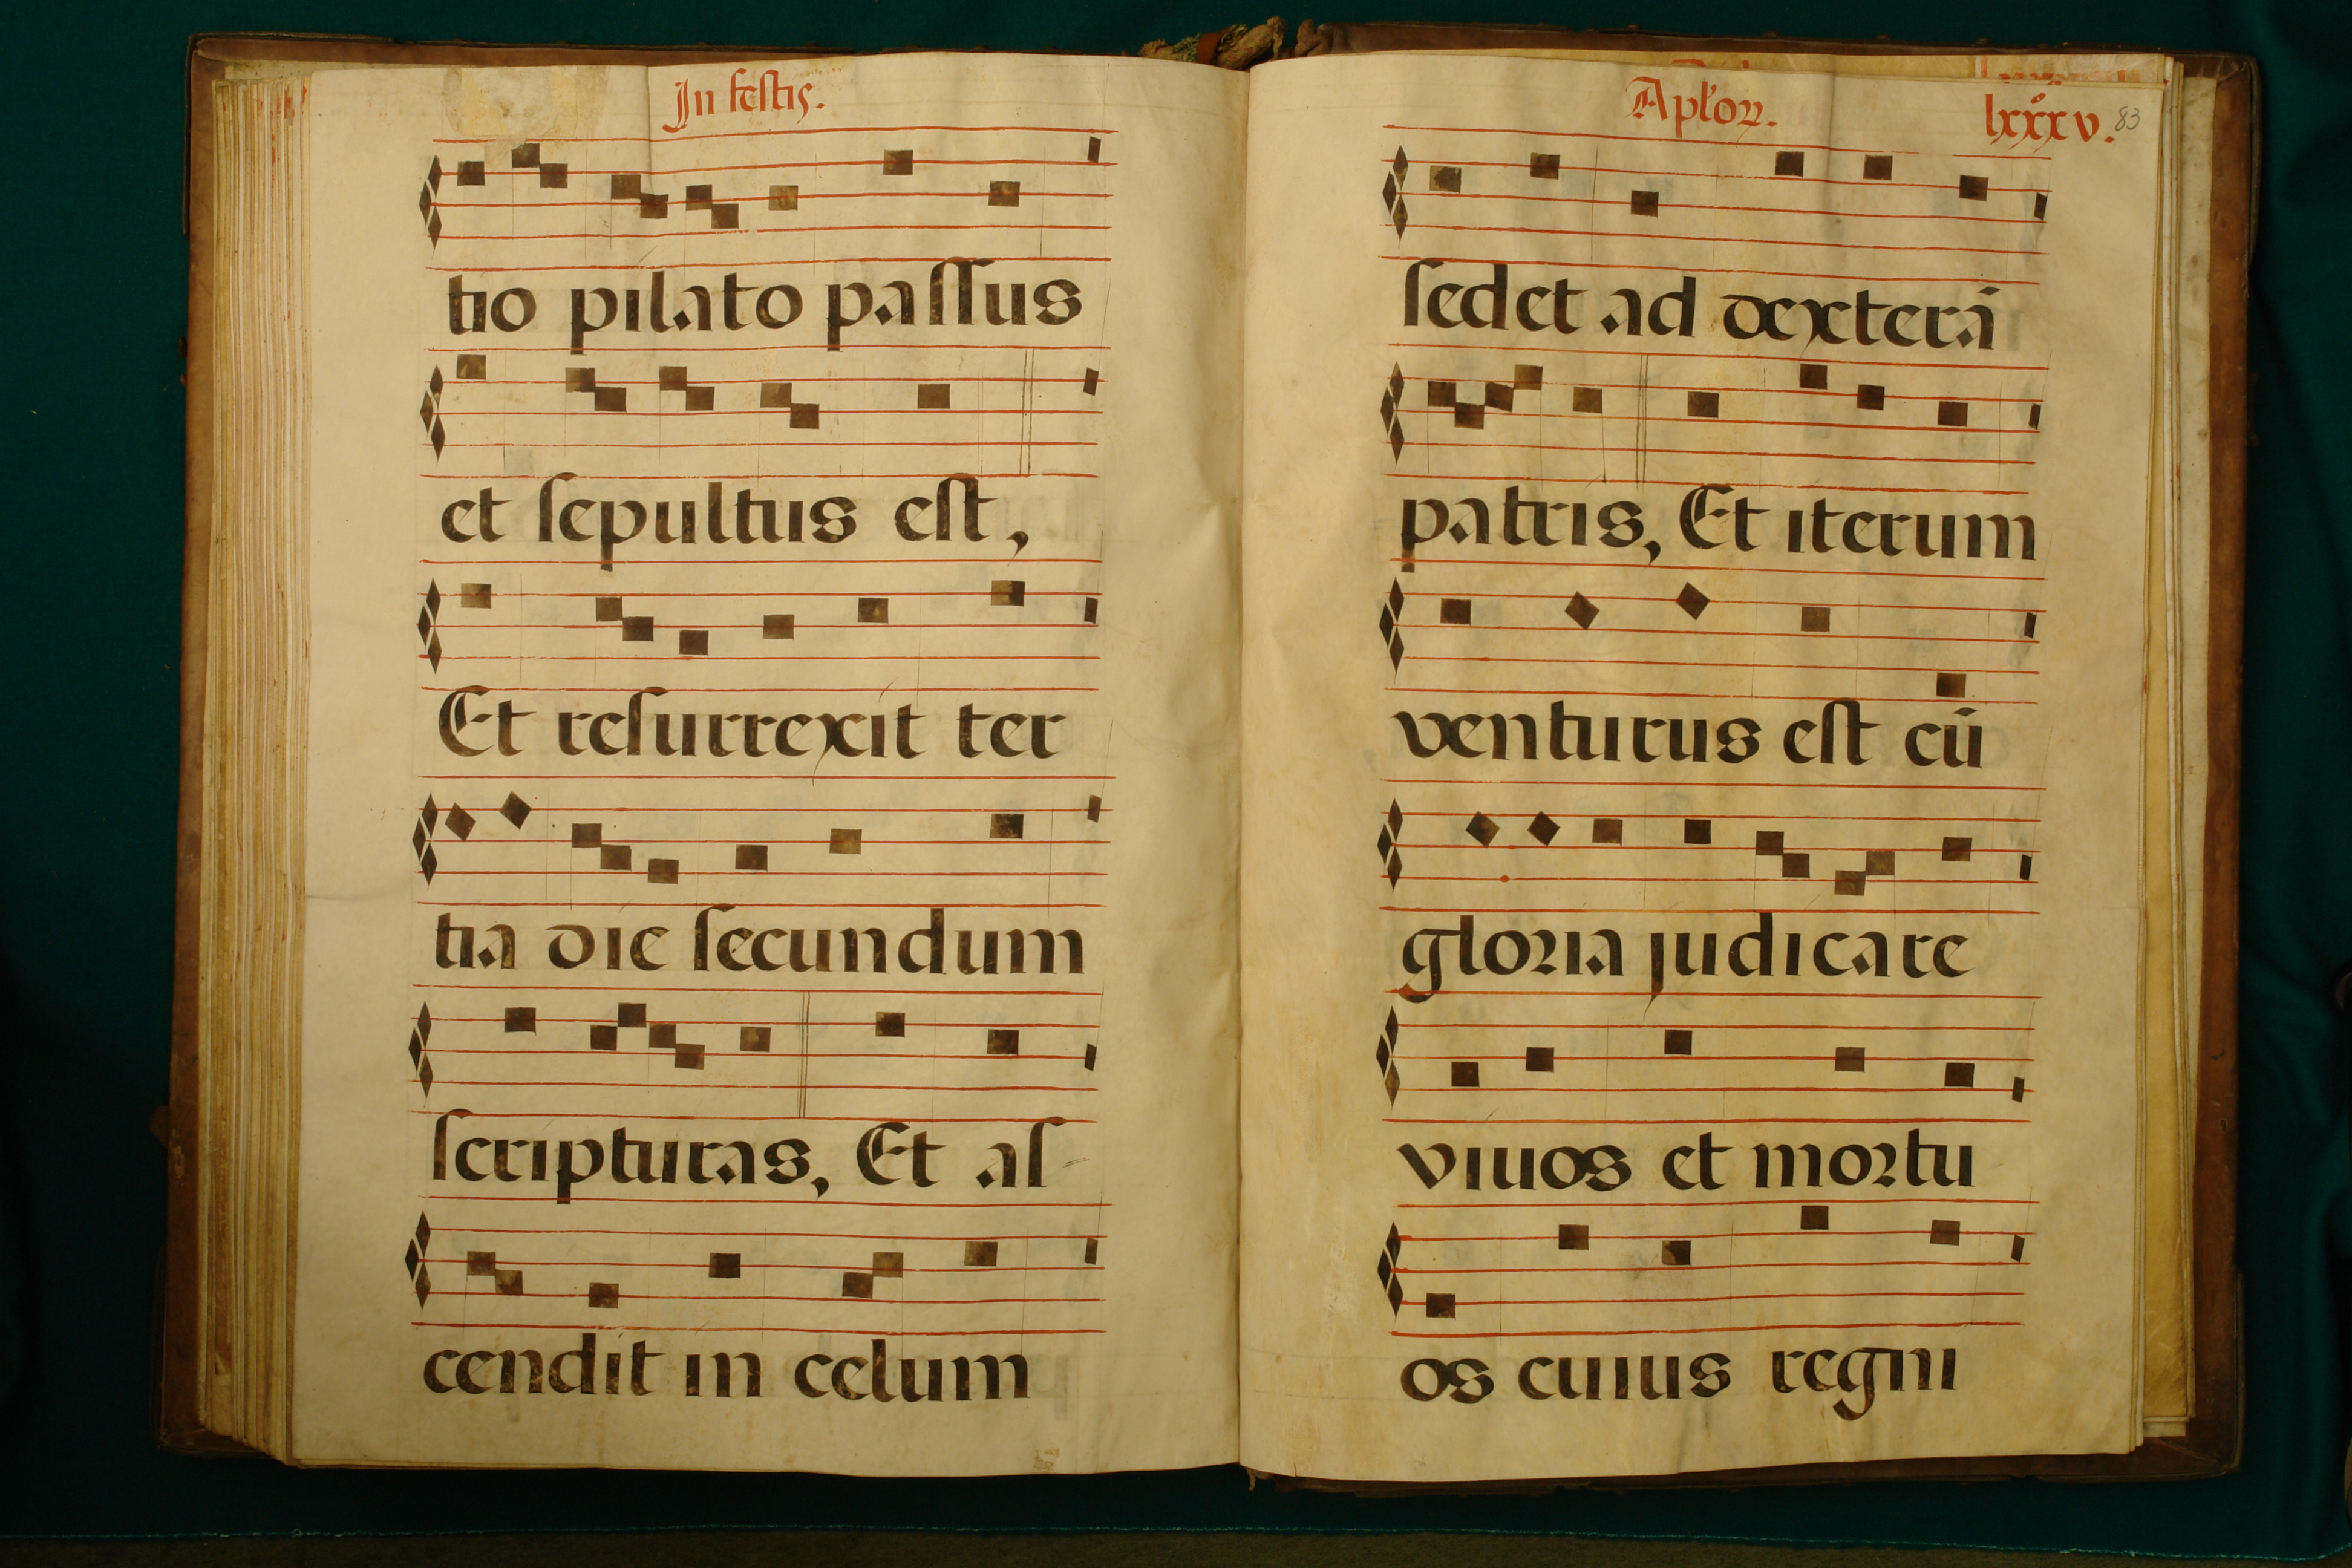 In festis.
tio pilato passus
et sepultus est,
Et resurrexit ter
tia die secundum
scripturas, Et as
cendit in celum
Apľoꝝ. lxxxv. 83
sedet ad dexterā
patris, Et iterum
venturus est cū
gloria judicare
viuos et mortu
os cuius regni